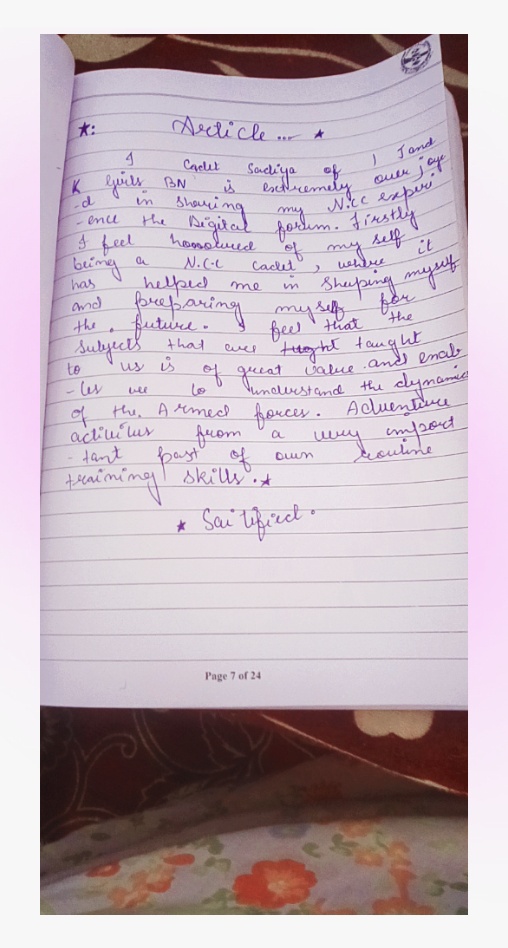 ★: Article... ★
I Cadet Sadiya of 1 J and
K Girls BN is extremely over joye
-d in sharing my N.CC experi
-ence the Digital forum. Firstly
I feel honoured of my self
being a N.C.C cadet, where it
has helped me in Sheping myself
and preparing myself for
the. future. I feel that the
Subjects that are taught
to us is of great value. and enab
-les us to understand the dynamics
of the. Armed forces. Adventure
activities from a very import
-tant part of own routine
training skills. ★
★ Sai tified.
Page 7 of 24